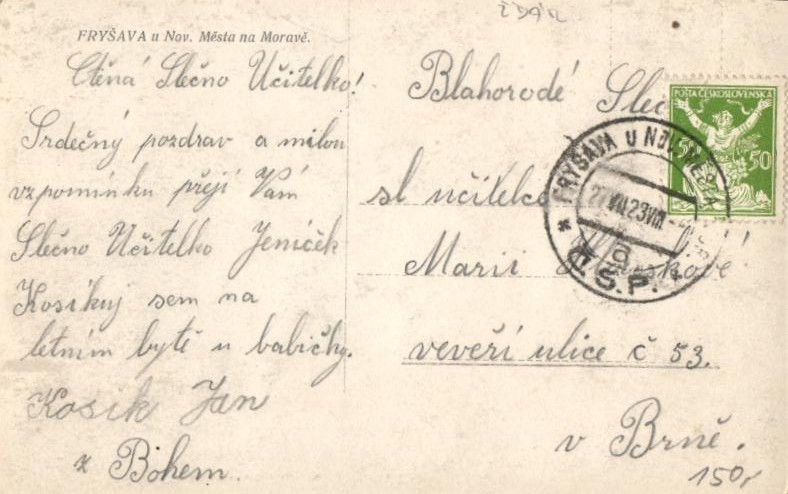 FRYŠAVA u Nov. Města na Moravě.
Ctěná Slečno Učitelko!
Srdečný pozdrav a milou
vzpomínku přejí Vám
Slečno Učitelko Jeníček
Kosíkuj sem na
letním bytě u babičky.
Kosik Jan
z Bohem.
Blahorodé Slec
sl učitelce
Marii
veveří ulice č 53.
v Brně.
POŠTA ČESKOSLOVENSKÁ
50
FRYŠAVA u NOV. MĚSTA
T.S.P.
150,